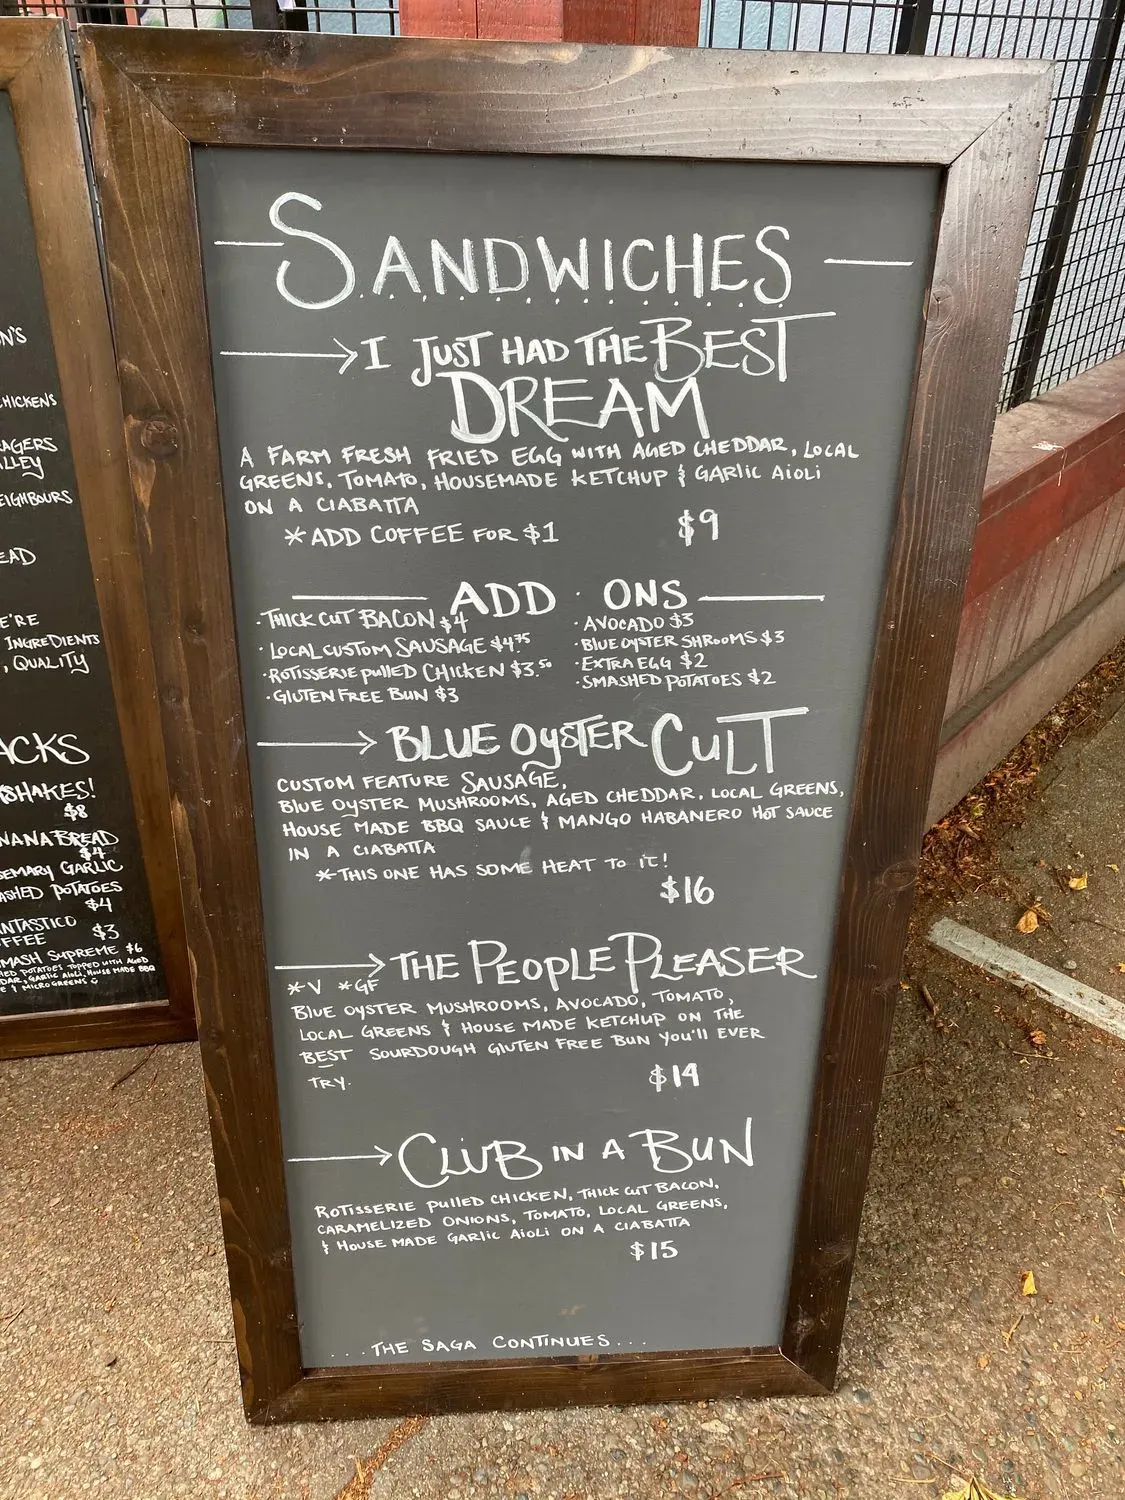 SANDWICHES
I JUST HAD THE BEST
DREAM
A FARM FRESH FRIED EGG WITH AGED CHEDDAR, LOCAL
GREENS, TOMATO, HOUSEMADE KETCHUP & GARLIC AIOLI
ON A CIABATTA
*ADD COFFEE FOR $1 $9
ADD · ONS
· THICK CUT BACON $4
· LOCAL CUSTOM SAUSAGE $4.75
· ROTISSERIE PULLED CHICKEN $3.50
· GLUTEN FREE BUN $3
· AVOCADO $3
· BLUE OYSTER SHROOMS $3
· EXTRA EGG $2
· SMASHED POTATOES $2
BLUE OYSTER CULT
CUSTOM FEATURE SAUSAGE,
BLUE OYSTER MUSHROOMS, AGED CHEDDAR, LOCAL GREENS,
HOUSE MADE BBQ SAUCE & MANGO HABANERO HOT SAUCE
IN A CIABATTA
*THIS ONE HAS SOME HEAT TO IT!
$16
THE PEOPLE PLEASER
*V *GF
BLUE OYSTER MUSHROOMS, AVOCADO, TOMATO,
LOCAL GREENS & HOUSE MADE KETCHUP ON THE
BEST SOURDOUGH GLUTEN FREE BUN YOU'LL EVER
TRY. $14
CLUB IN A BUN
ROTISSERIE PULLED CHICKEN, THICK CUT BACON,
CARAMELIZED ONIONS, TOMATO, LOCAL GREENS,
& HOUSE MADE GARLIC AIOLI ON A CIABATTA
$15
...THE SAGA CONTINUES...
CHICKENS
INGREDIENTS
, QUALITY
$8
BREAD
$4
GARLIC
POTATOES
$4
$3
SUPREME $6
POTATOES TOPPED WITH AGED
GARLIC AIOLI, HOUSE MADE BBQ
& MICROGREENS